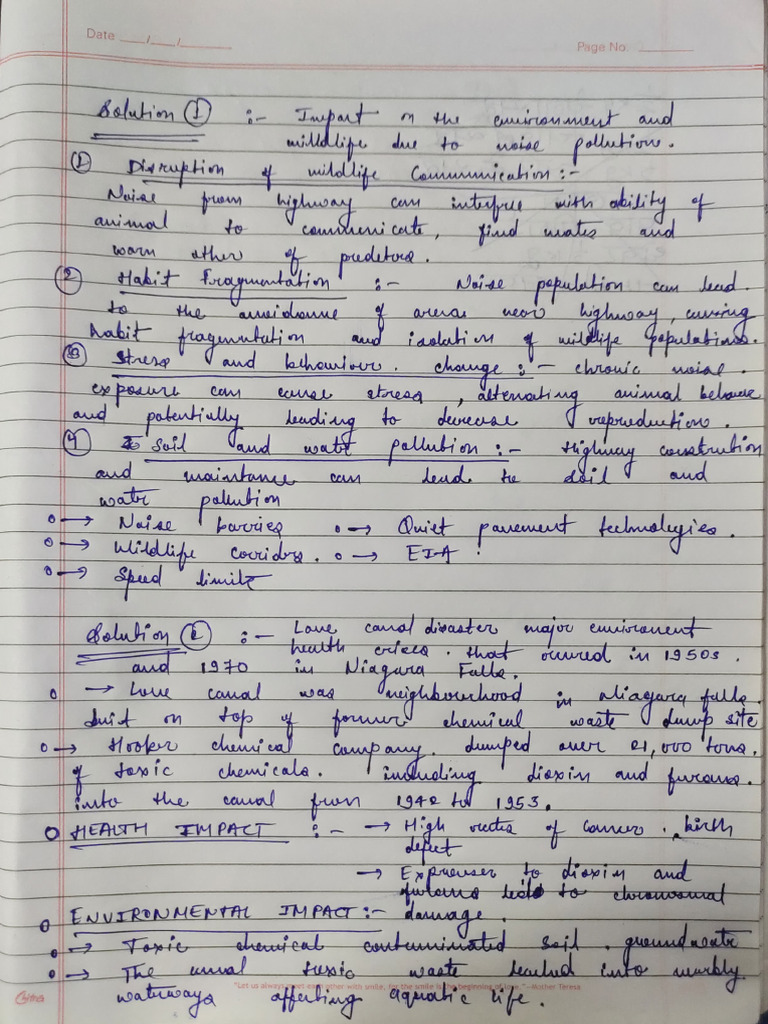 Date ___/___/______
Page No. ______
Solution ① :- Impact on the environment and
wildlife due to noise pollution.
① Disruption of wildlife Communication :-
Noise from highway can interfree with ability of
animal to communicate, find mates and
warn other of predetors.
② Habit Fragmentation :- Noise population can lead
to the avoidance of areas near highway, causing
habit fragmentation and isolation of wildlife populations.
③ Stress and behaviour change :- chronic noise
exposure can cause stress, altenating animal behave
and potentially leading to decrease reproduction.
④ Soil and water pollution :- Highway construction
and maintance can lead to soil and
water pollution
o→ Noise barries o→ Quiet pavement technologies.
o→ Wildlife corridors. o→ EIA
o→ Speed limits
Solution ② :- Love canal disaster major environent
health crises. that occured in 1950s
and 1970 in Niagara Falls.
o → Love canal was neighbourhood in Niagara falls.
buit on top of former chemical waste dump site
o→ Hooker chemical company. dumped over 21,000 tons
of toxic chemicals. including dioxin and furans.
into the canal from 1942 to 1953.
o HEALTH IMPACT :- → High of cancer. birth
defect
→ to dioxin and
furans leds to chromosomal
o ENVIRONMENTAL IMPACT :- damage.
o→ Toxic chemical contaminated soil. groundwate
o→ The canal toxic waste leached into nearby
"Let us always meet each other with smile, for the smile is the beginning of love." –Mother Teresa
waterways affecting aquatic life.